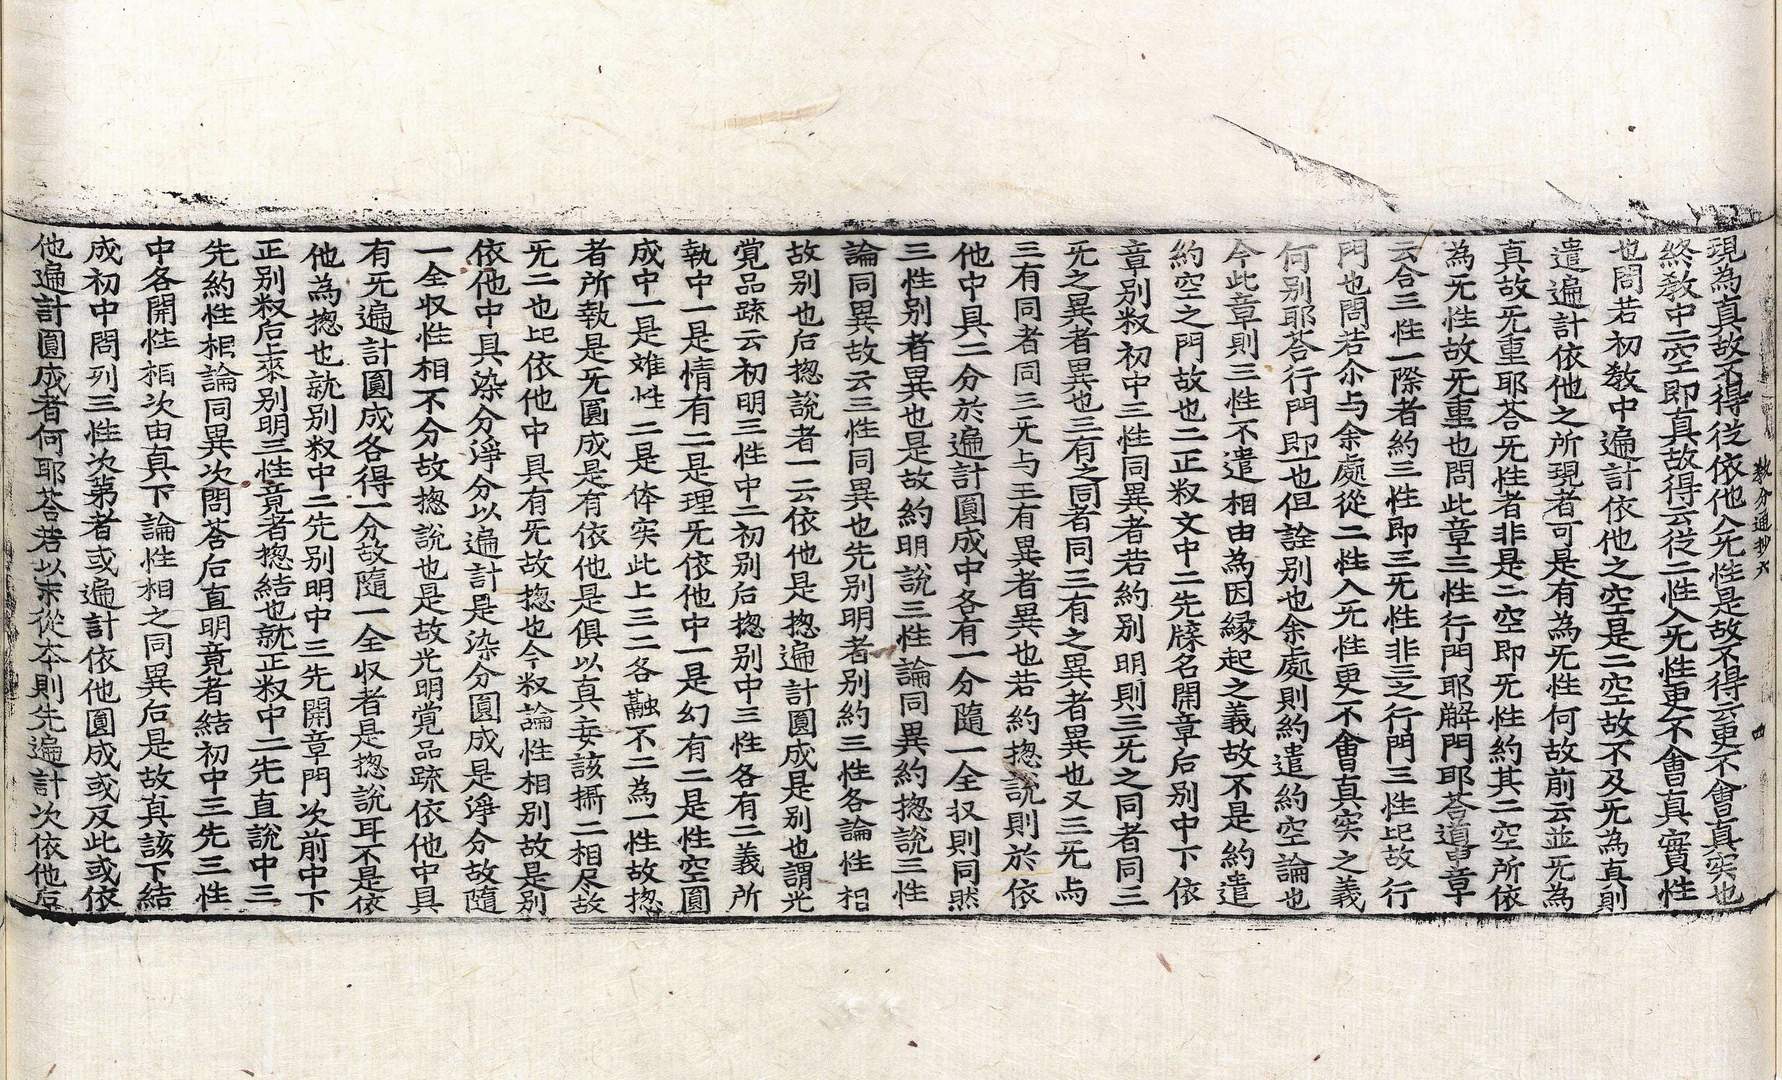 現為真故不得従依他入旡性是故不得云更不會真実也
終教中二空即真故得云従二性入旡性更不會真實性
也問若初教中遍計依他之空是二空故不及旡為真則
遣遍計依他之所現者可是有為旡性何故前云並旡為
真故旡重耶荅旡性者非是二空即旡性約其二空所依
為旡性故旡重也問此章三性行門耶解門耶荅章
云合三性一際者約三性即三旡性非三之行門三性比故行
門也問若尒与余處從二性入旡性更不會真実之義
何別耶荅行門即一也但詮別也余處則約遣約空論也
今此章則三性不遣相由為因緣起之義故不是約遣
約空之門故也二正㪽文中二先牒名開章后別中下依
章別㪽初中三性同異者若約別明則三旡之同者同三
旡之異者異也三有之同者同三有之異者異也又三旡与
三有同者同三旡与三有異者異也若約揔說則於依
他中具二分於遍計圓成中各有一分隨一全収則同然
三性別者異也是故約明說三性論同異約揔說三性
論同異故云三性同異也先別明者別約三性各論性相
故別也后揔說者一云依他是揔遍計圓成是別也謂光
覺品䟽云初明三性中二初別后揔別中三性各有二義所
執中一是情有二是理旡依他中一是幻有二是性空圓
成中一是難性二是体実此上三二各融不二為一性故揔
者所執是旡圓成是有依他是俱以真妄該攝二相尽故
旡二也比依他中具有旡故揔也今㪽論性相別故是別
依他中具染分淨分以遍計是染分圓成是淨分故隨
一全収性相不分故揔說也是故光明覺品䟽依他中具
有旡遍計圓成各得一分故隨一全収者是揔說耳不是依
他為揔也就別㪽中二先別明中三先開章門次前中下
正別㪽后來別明三性竟者揔結也就正㪽中二先直說中三
先約性相論同異次問荅后直明竟者結初中三先三性
中各開性相次由真下論性相之同異后是故真該下結
成初中問列三性次第者或遍計依他圓成或反此或依
他遍計圓成者何耶荅若以末從本則先遍計次依他后
教分通抄六
四